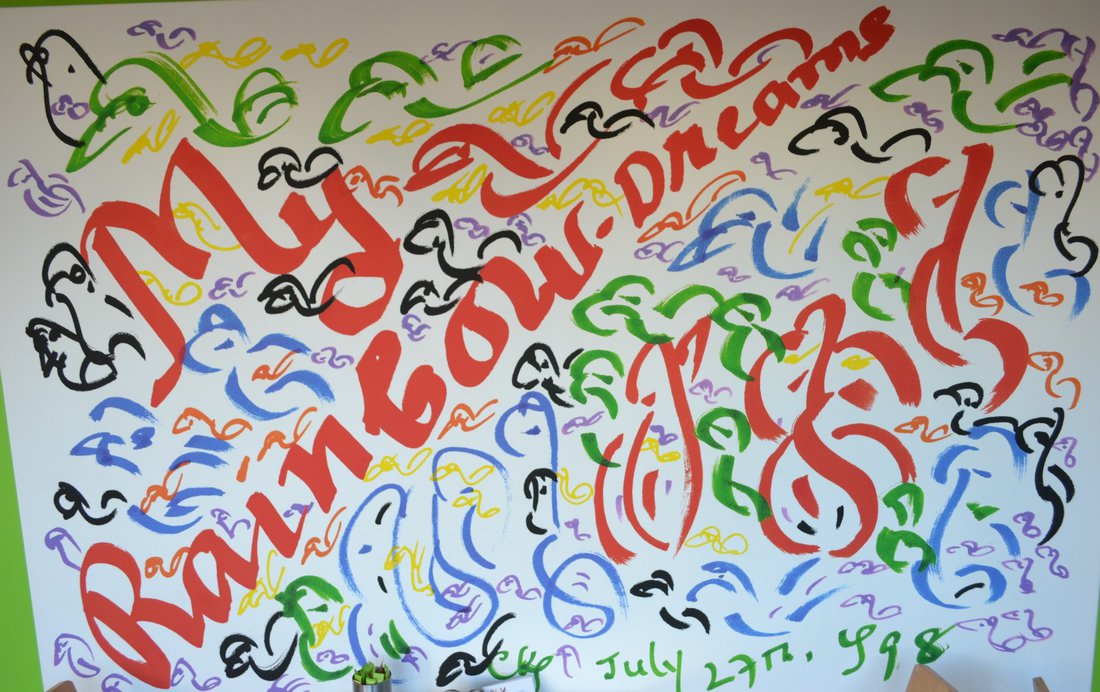 My
Rainbow.Dreams
July 27Th.